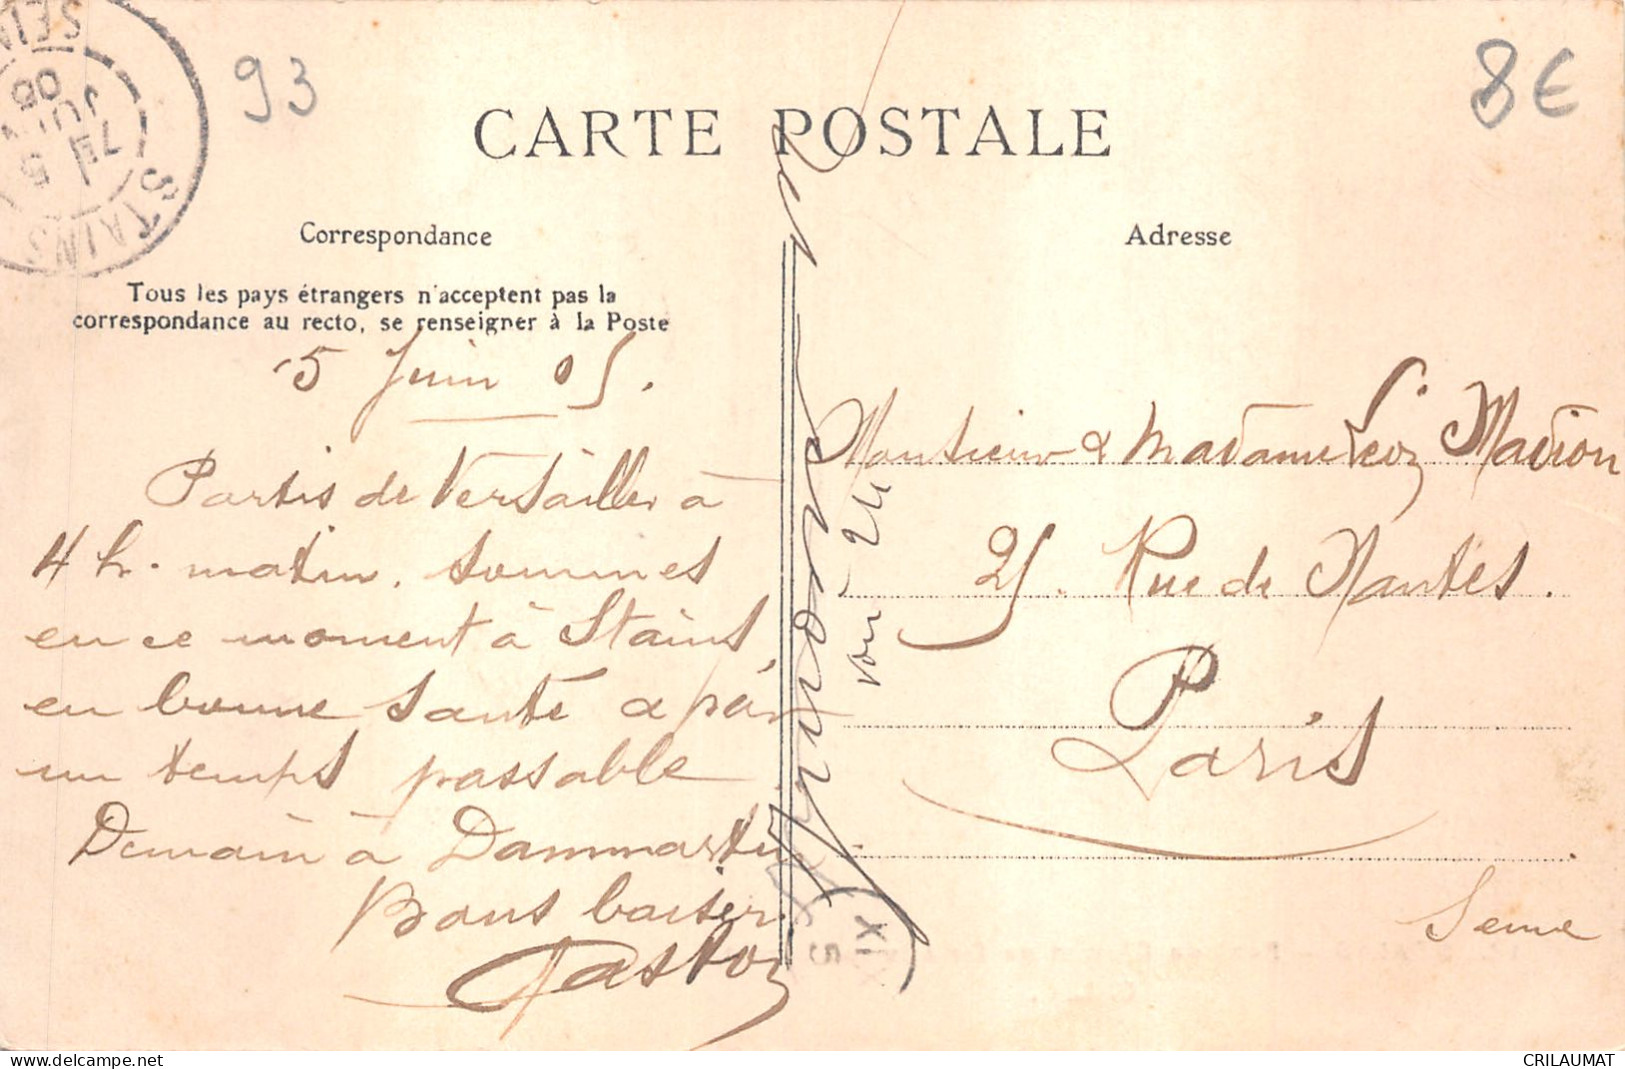 93
8€
CARTE POSTALE
STAINS
SEINE
5
JUIN
05
Correspondance
Adresse
Tous les pays étrangers n'acceptent pas la
correspondance au recto, se renseigner à la Poste
5 Juin 05.
Partis de Versailles à
4 h. matin. sommes
en ce moment à Stains,
en bonne santé & par
un temps passable
Demain à Dammartin
Bons baisers
Gaston
Monsieur & Madame Léon Marion
25. Rue de Nantes.
Paris
Seine
XI
5
www.delcampe.net
CRILAUMAT